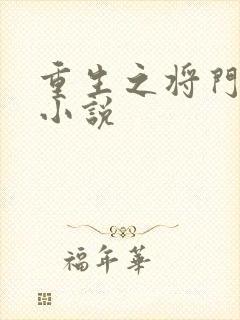 重生之将門
小説
福年華